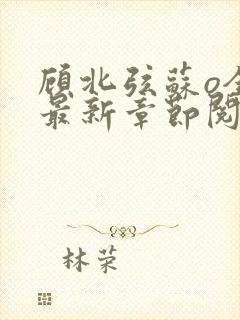 顾北弦蘇o全
最新章節閱
林荣